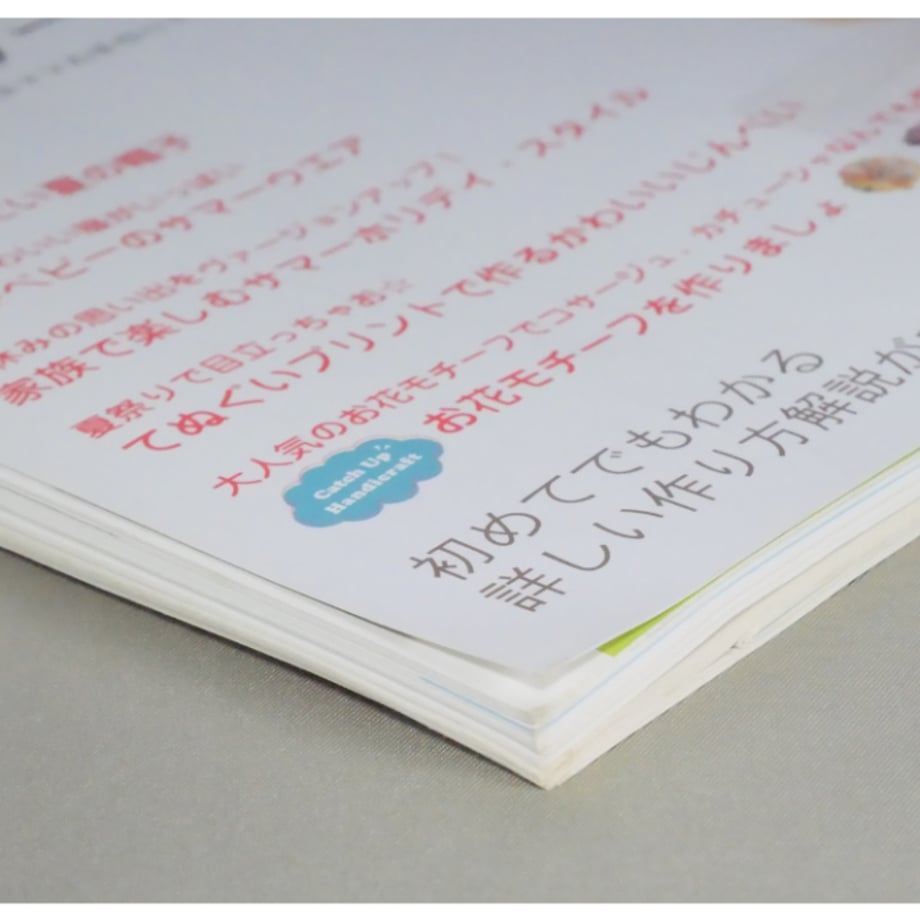 い夏の帽子
いい服がいっぱい
ベビーのサマーウエア
休みの思い出をヴァージョンアップ!
家族で楽しむサマーホリデイ・スタイル
夏祭りで目立っちゃお☆
てぬぐいプリントで作るかわいいじんべい
大人気のお花モチーフでコサージュ、カチューシャなんでも
Catch Up
Handicraft
お花モチーフを作りましょ
初めてでもわかる
詳しい作り方解説が